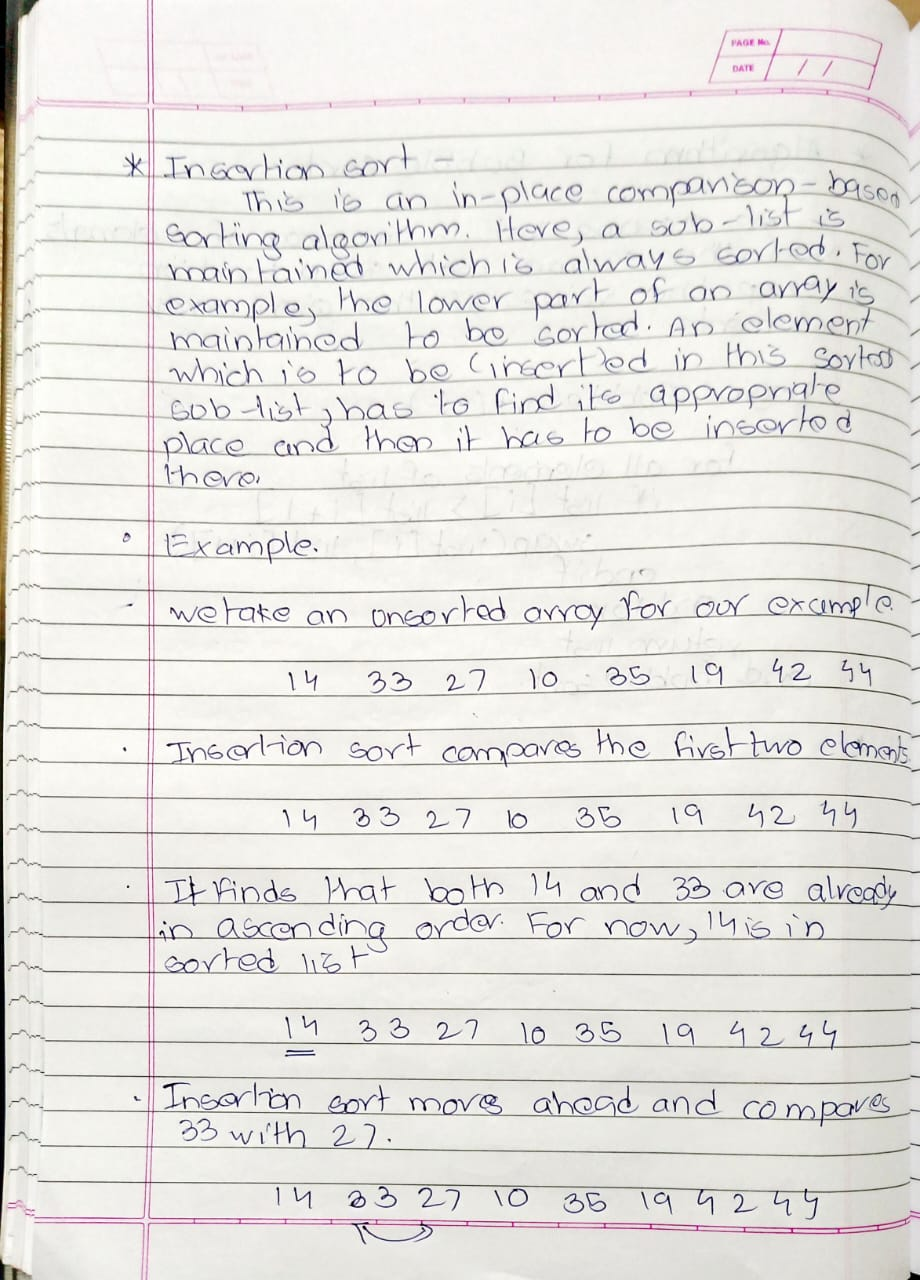 PAGE No.
DATE / /
* Insertion sort -
This is an in-place comparison-based
sorting algorithm. Here, a sub-list is
maintained which is always sorted. For
example, the lower part of an array is
maintained to be sorted. An element
which is to be (insert)ed in this sorted
sub-list, has to find its appropriate
place and then it has to be inserted
there.
Example.
- we take an unsorted array for our example.
14 33 27 10 35 19 42 44
. Insertion sort compares the first two elements
14 33 27 10 35 19 42 44
. It finds that both 14 and 33 are already
in ascending order. For now, 14 is in
sorted list
14 33 27 10 35 19 42 44
. Insertion sort moves ahead and compares
33 with 27.
14 33 27 10 35 19 42 44